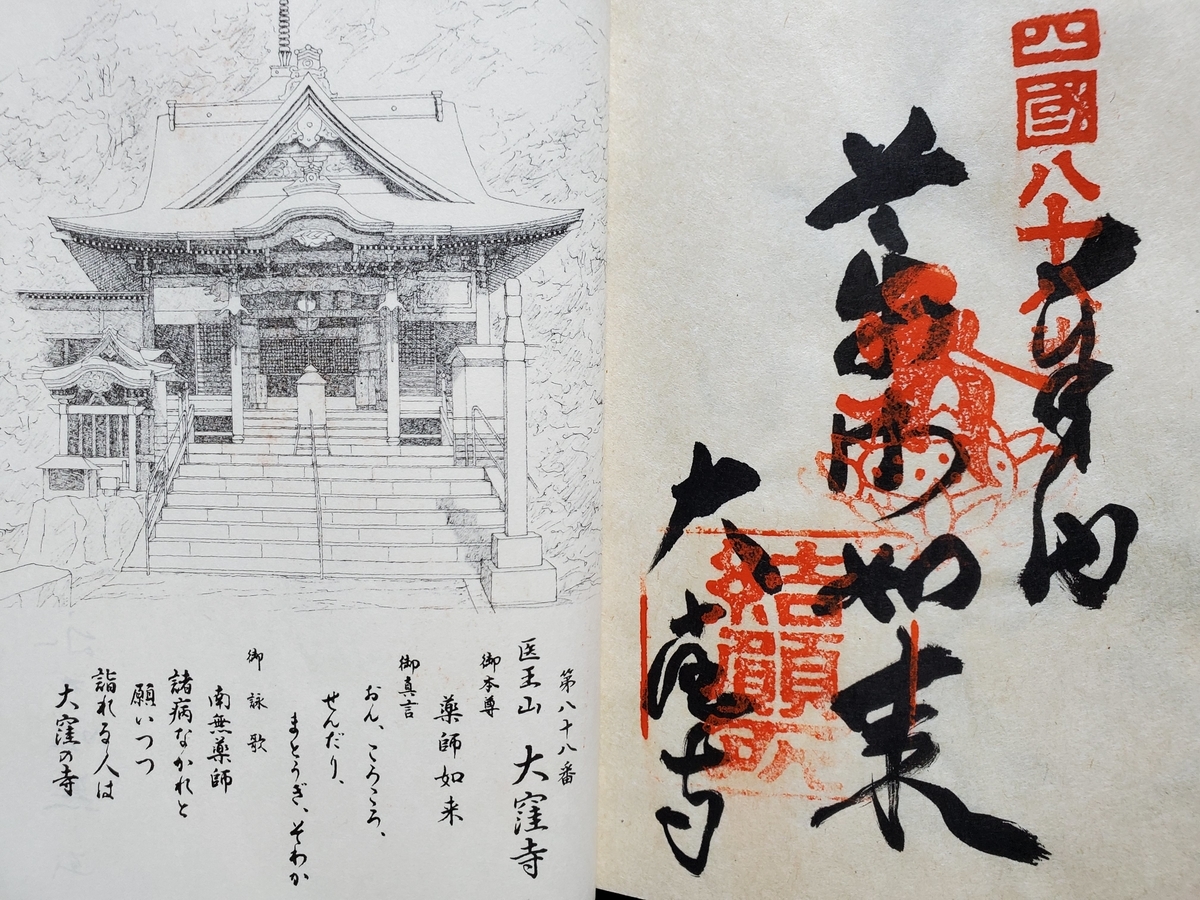 四國八十八
薬師如来
結願所
大窪寺
第八十八番
医王山 大窪寺
御本尊
薬師如来
御真言
おん、ころころ、
せんだり、
まとうぎ、そわか
御詠歌
南無薬師
諸病なかれと
願いつつ
詣れる人は
大窪の寺